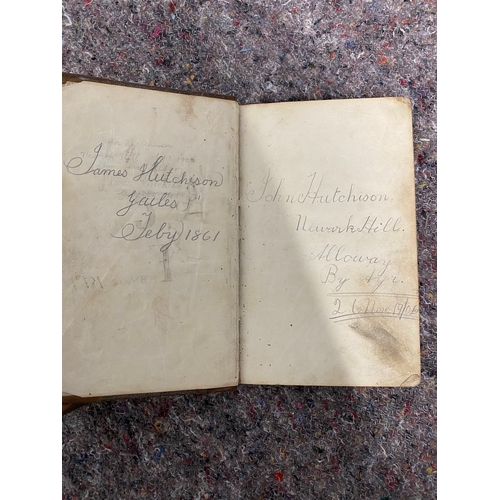 James Hutchison
Gailes
Feby 1861
John Hutchison
Newark Hill.
Alloway
By Ayr.
26 Nov